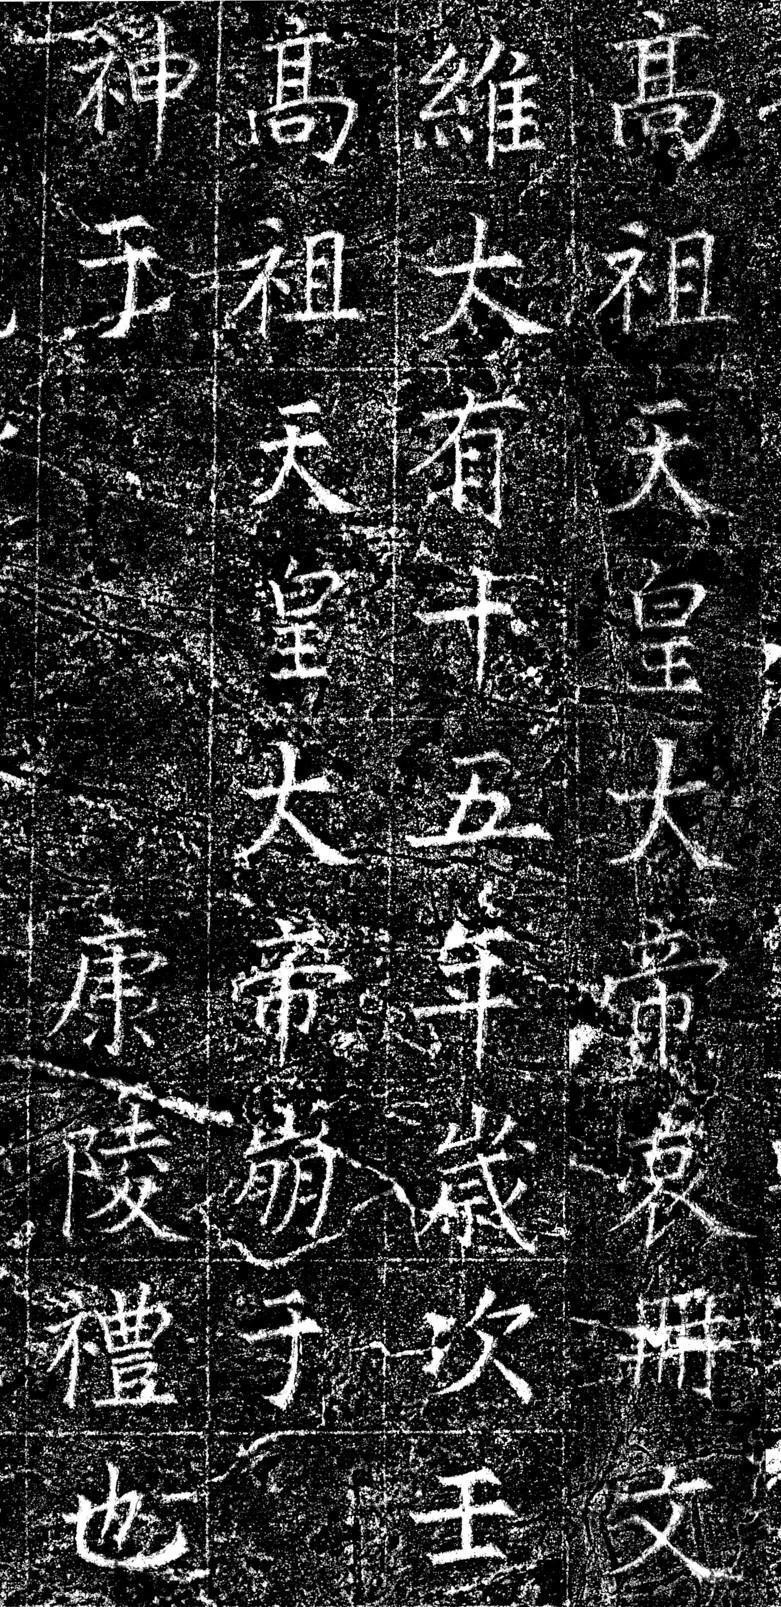 高祖天皇大帝哀冊文
維太有十五年歲次壬
高祖天皇大帝崩于
神于康陵禮也